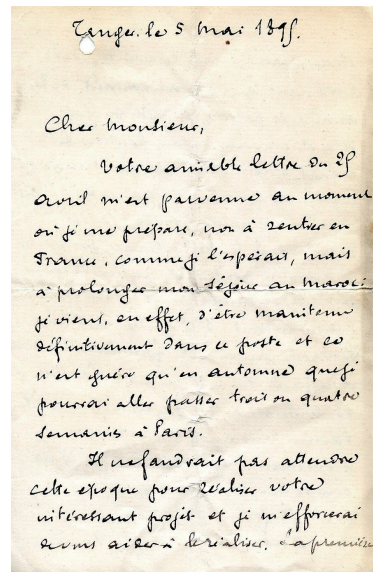 Tanger. le 5 mai 1895.
Cher Monsieur,
Votre aimable lettre du 25
avril m'est parvenue au moment
où je me prépare, non à rentrer en
France, comme je l'espérais, mais
à prolonger mon séjour au Maroc :
je viens, en effet, d'être maintenu
définitivement dans ce poste et ce
n'est guère qu'en automne que je
pourrai aller passer trois ou quatre
semaines à Paris.
Il ne faudrait pas attendre
cette époque pour réaliser votre
intéressant projet et je m'efforcerai
de vous aider à le réaliser. La première